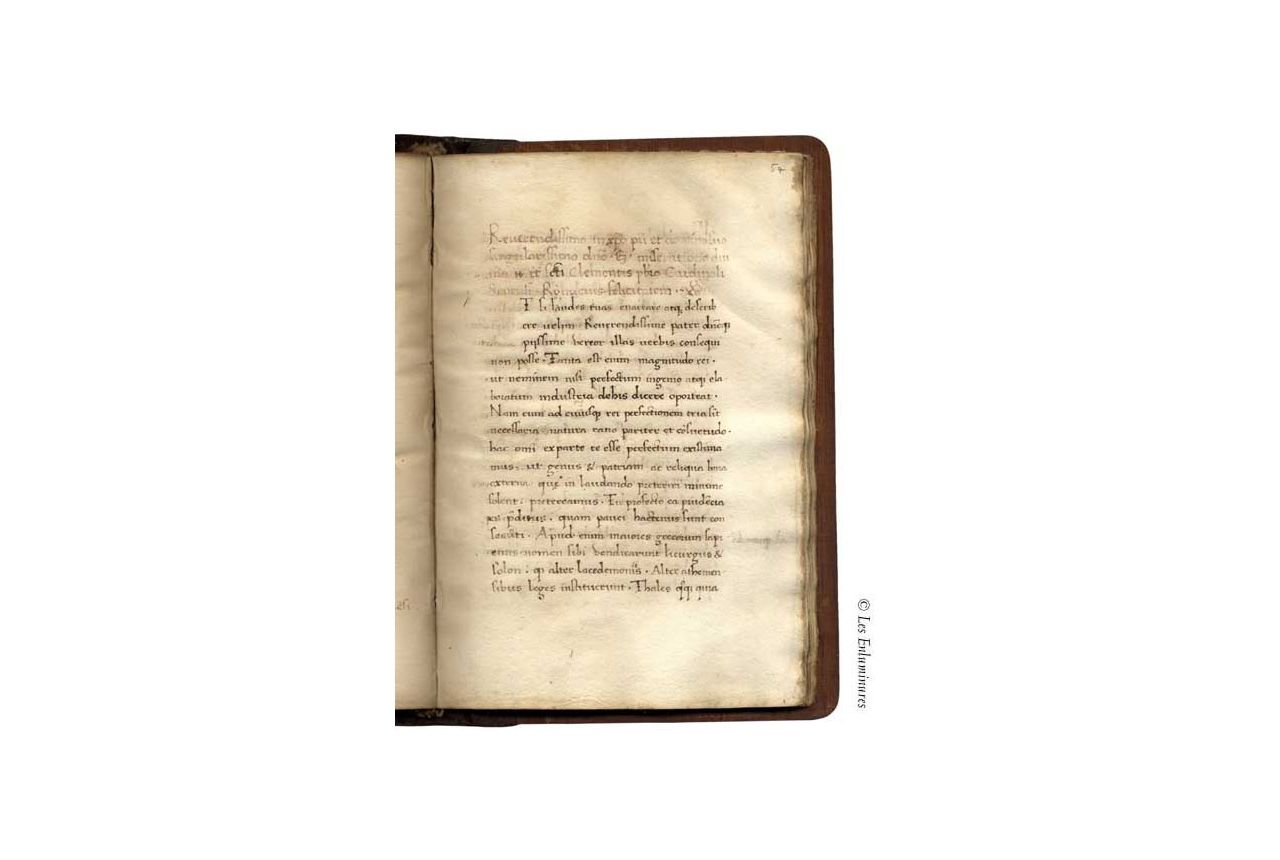 54
Reverendissimo in xpo pri et
singularissimo dno
et scti Clementis pbro Cardinali
felicitatem
T si laudes tuas enarrare atq; describ
ere velim Reverendissime pater dneq
piissime vereor illas verbis consequi
non posse. Tanta est enim magnitudo rei.
ut neminem nisi perfectum ingenio atq; ela
boratum industria dehis dicere oporteat.
Nam cum ad cuiusq rei perfectionem tria sit
necessaria natura ratio pariter et consuetudo.
hac omni exparte te esse perfectum existima
mus. ut genus & patriam ac reliqua bona
externa que in laudando preteriri minime
solent: pretereamus. Tu profecto ea prudencia
es preditus. quam pauci hactenus sunt con
secuti. Apud enim maiores grecorum sapi
entis nomen sibi vendicarunt licurgus &
solon: qp alter lacedemoniis. Alter athenien
sibus leges instituerunt. Thales qsq; quia
© Les Enluminures